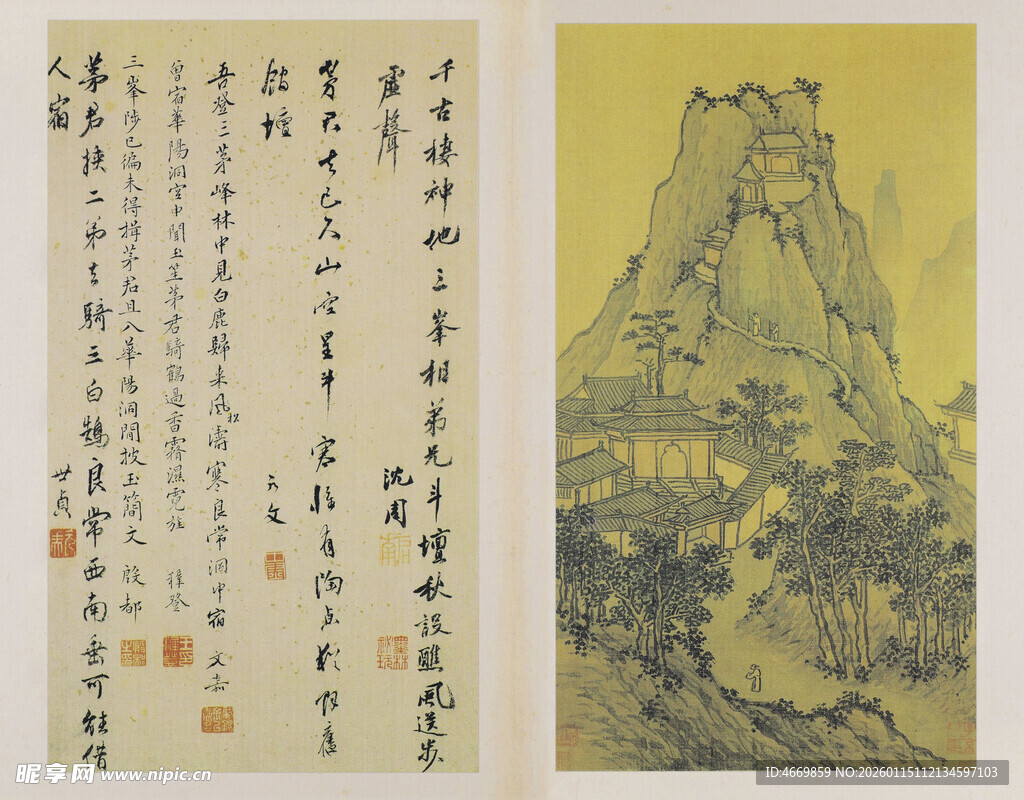 千古棲神地三峯相弟兄斗壇秋設醮風送步
虛聲
沈周
茅君去已久山空星斗寒惟有陶
舊
館壇
文
吾登三茅峰林中見白鹿歸来風松濤寒良常洞中宿 文嘉
曾宿華陽洞宮中聞玉笙茅君騎鶴過香霧濕霓旌 穉登
三峯陟已徧未得揖茅君且入華陽洞閒披玉簡文 殷都
茅君挾二弟去騎三白鵠良常西南垂可能借
人宿
世貞
昵享网 www.nipic.cn
ID:4669859 NO:20260115112134597103